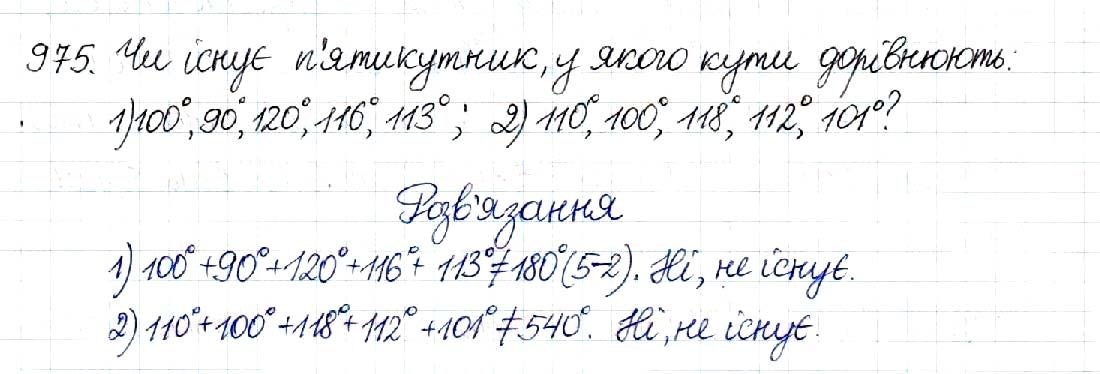 975. Чи існує п'ятикутник, у якого кути дорівнюють:
1) 100°, 90°, 120°, 116°, 113°; 2) 110°, 100°, 118°, 112°, 101°?
Розв'язання
1) 100°+90°+120°+116°+113°≠180°(5-2). Ні, не існує.
2) 110°+100°+118°+112°+101°≠540°. Ні, не існує.